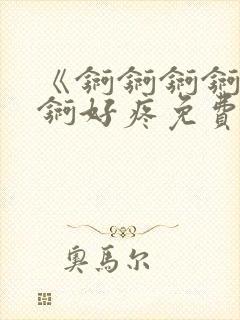 《锕锕锕锕
锕好疼免費
奥馬尔